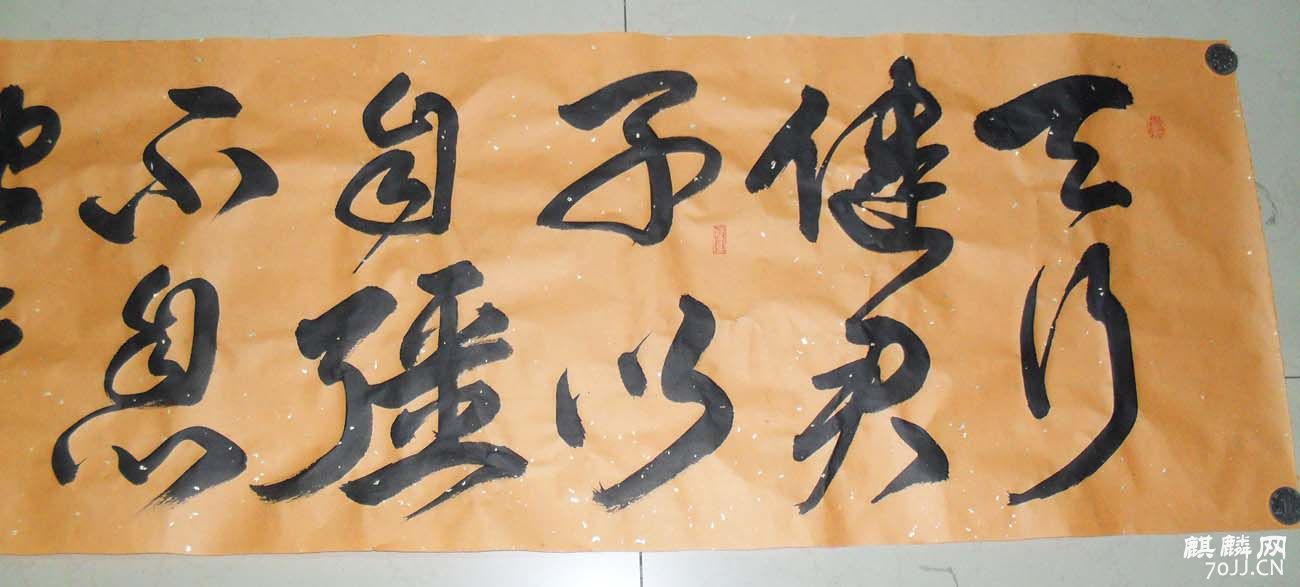 天行
健君
子以
自彊
不息
麒麟网
70JJ.CN